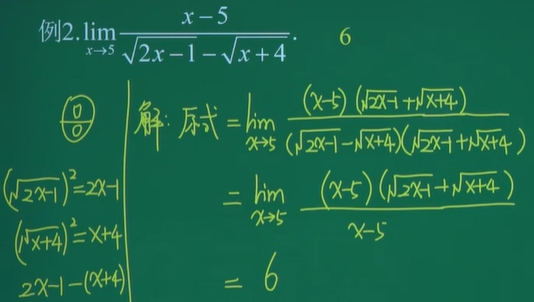 例2. lim x→5 (x−5)/(√(2x−1)−√(x+4)).
6
0/0
(√(2x-1))²=2x-1
(√(x+4))²=x+4
2x-1-(x+4)
解: 原式 = lim x→5 (x-5)(√(2x-1)+√(x+4))/((√(2x-1)-√(x+4))(√(2x-1)+√(x+4)))
= lim x→5 (x-5)(√(2x-1)+√(x+4))/(x-5)
= 6